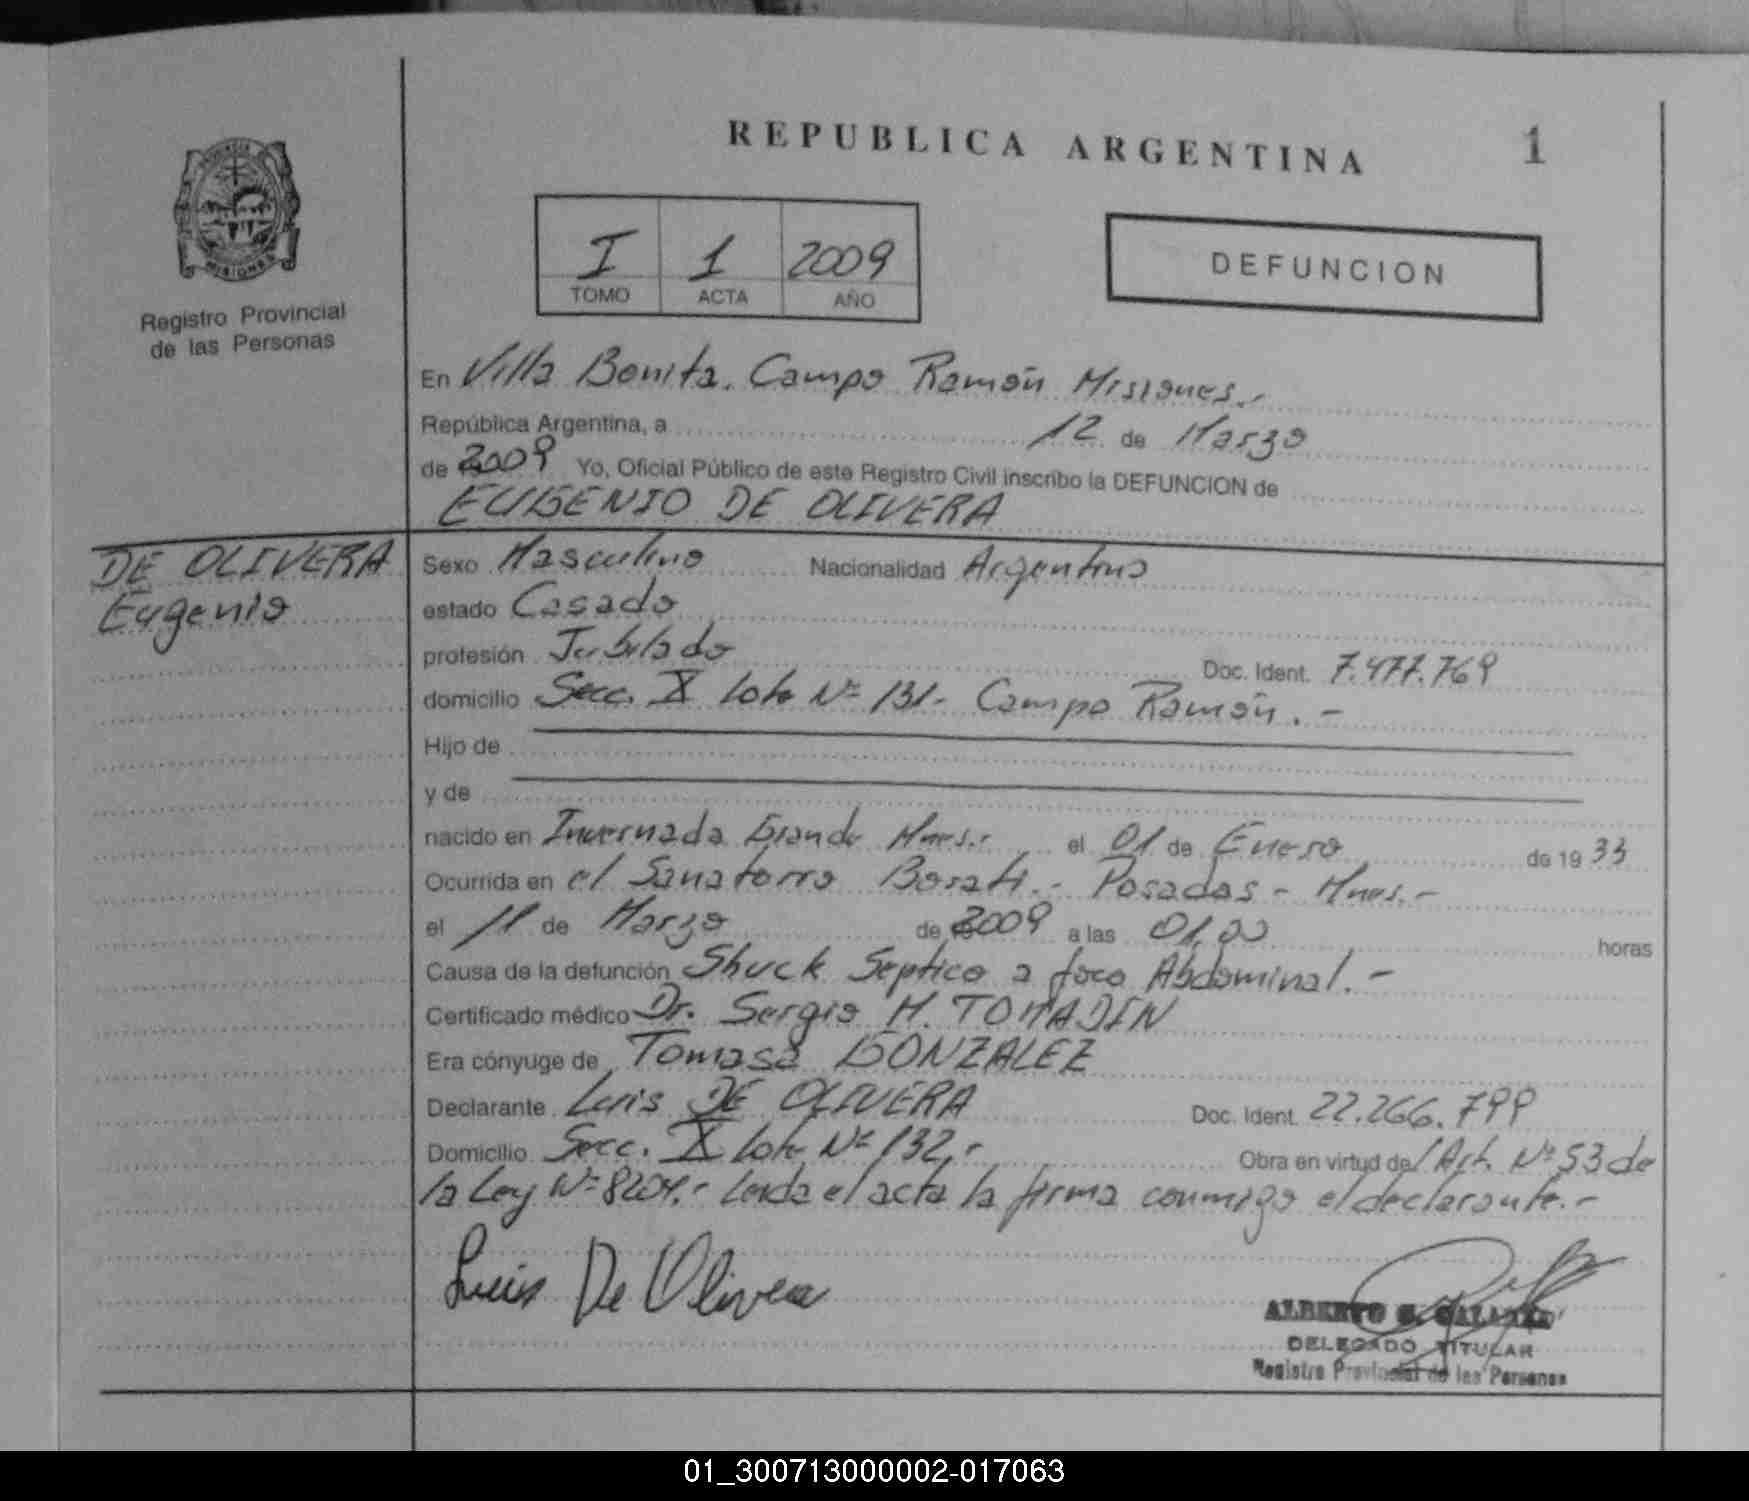 REPUBLICA ARGENTINA
1
MISIONES
Registro Provincial
de las Personas
I 1 2009
TOMO ACTA AÑO
DEFUNCION
En Villa Bonita. Campo Ramón Misiones.-
República Argentina, a 12 de Marzo
de 2009 Yo, Oficial Público de este Registro Civil inscribo la DEFUNCION de
EUGENIO DE OLIVERA
DE OLIVERA
Eugenio
Sexo Masculino Nacionalidad Argentino
estado Casado
profesión Jubilado Doc. Ident. 7.477.769
domicilio Secc. X lote Nº 131.- Campo Ramón.-
Hijo de
y de
nacido en Invernada Grande Mnes.- el 01 de Enero de 1933
Ocurrida en el Sanatorio Posadas - Mnes.-
el 11 de Marzo de 2009 a las 01,00 horas
Causa de la defunción Shock Septico a foco Abdominal.-
Certificado médico Dr. Sergio H. TOMADIN
Era cónyuge de Tomasa GONZALEZ
Declarante Luis DE OLIVERA Doc. Ident. 22.266.799
Domicilio Secc. X lote Nº 132.- Obra en virtud del Art. Nº 53 de
la Ley Nº 8204.- Leída el acta la firma conmigo el declarante.-
Luis De Olivera
ALBERTO
DELEGADO TITULAR
Registro Provincial de las Personas
01_300713000002-017063